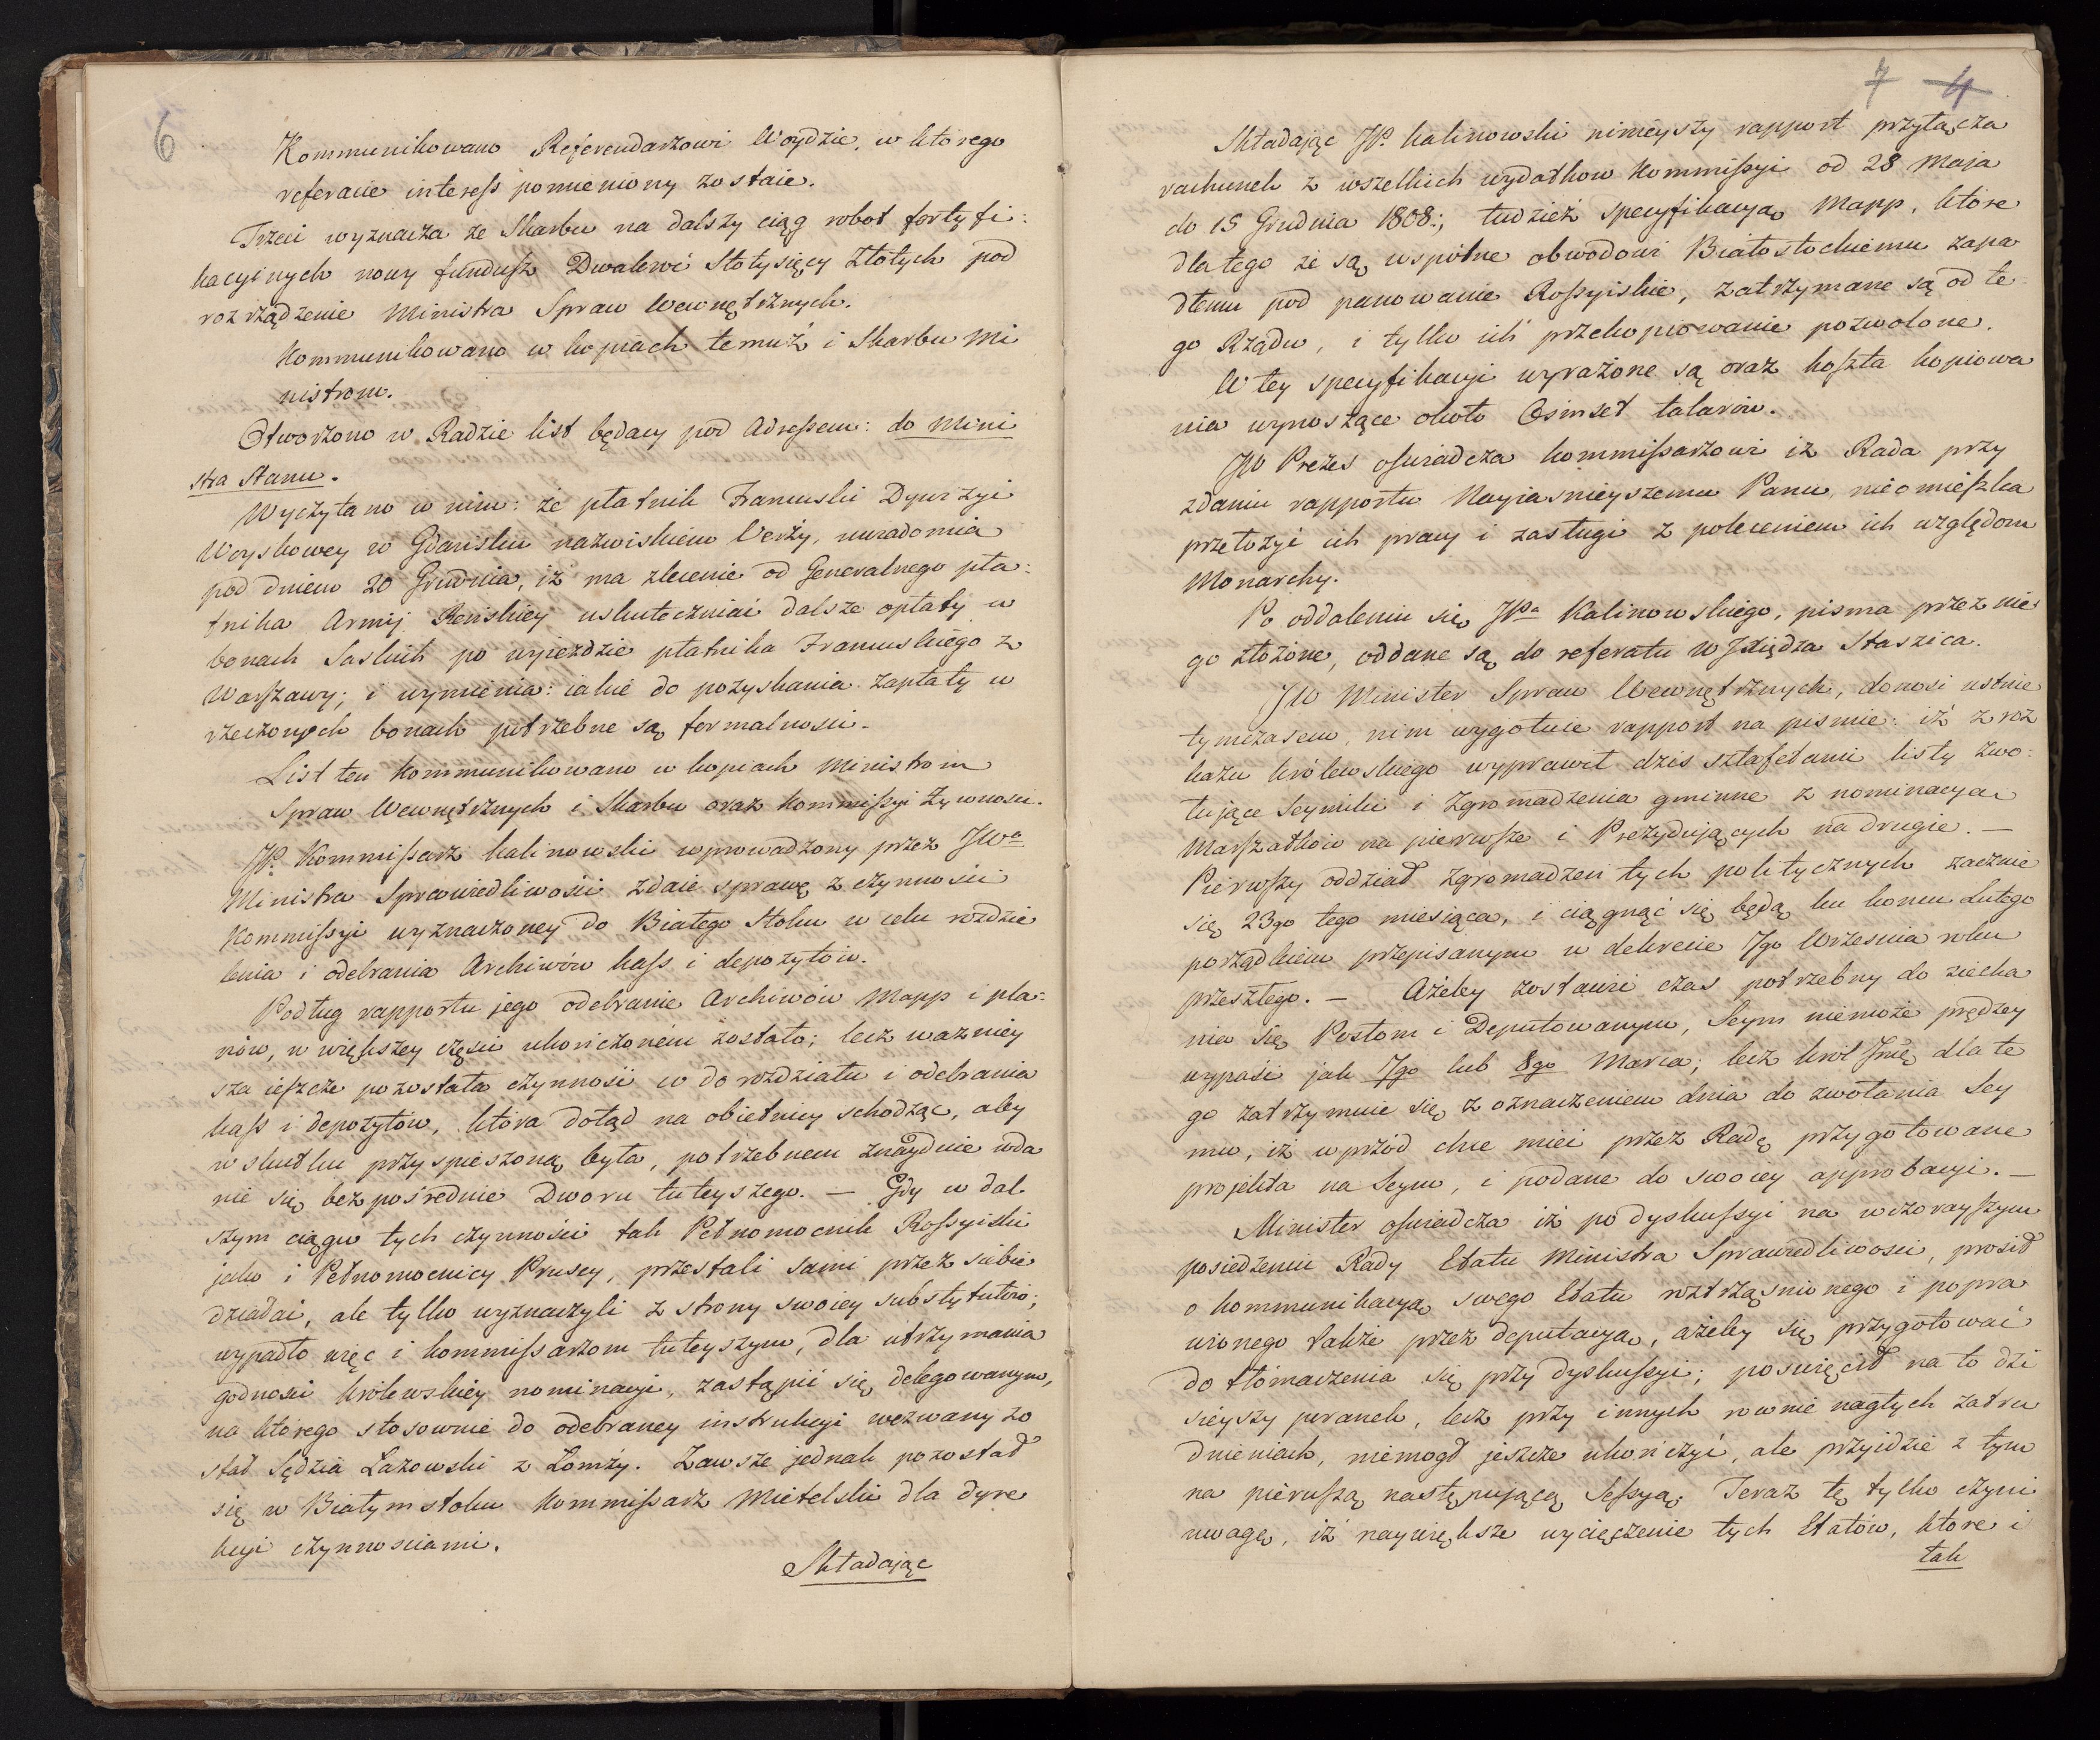 6
Kommunikowano Referendarzowi Woydzie, w którego
referacie interess pomieniony zostaie.
Trzeci wyznacza ze Skarbu na dalszy ciąg robot fortyfi:
kacyinych nowy fundusz Dwakroć Stotysięcy Złotych pod
rozrządzenie Ministra Spraw Wewnętrznych.
Kommunikowano w kopiach temuż i Skarbu Mi
nistrom.
Otworzono w Radzie list będący pod Adressem: do Mini
stra Stanu.
Wyczytano w nim: że płatnik Francuski Dywizyi
Woyskowey w Gdańsku nazwiskiem Verży, uwiadomia
pod dniem 20 Grudnia, iż ma zlecenie od Generalnego pła:
tnika Armij Reńskiey uskuteczniać dalsze opłaty w
bonach Saskich po wyieździe płatnika Francuskiego z
Warszawy; i wymienia: iakie do pozyskania zapłaty w
rzeczonych bonach potrzebne są formalności.
List ten Kommunikowano w kopiach Ministrom
Spraw Wewnętrznych i Skarbu oraz Kommissyi Żywności.
JP. Kommissarz Kalinowski wprowadzony przez JWo
Ministra Sprawiedliwości zdaie sprawę z czynności
Kommissyi wyznaczoney do Białego Stoku w celu rozdzie
lenia i odebrania Archiwów kass i depozytów.
Podług rapportu jego odebranie Archiwów Mapp i pla:
nów, w większey częsci ukończoném zostało; lecz ważniey
sza ieszcze pozostała czynność w do rozdziału i odebrania
kass i depozytów, która dotąd na obietnicy schodząc, aby
w skutku przyspieszoną była, potrzebnem znayduie uda
nie się bezpośrednie Dworu tuteyszego. — Gdy w dal
szym ciągu tych czynności tak Pełnomocnik Rossyiski
jako i Pełnomocnicy Pruscy, przestali sami przez siebie
działać, ale tylko wyznaczyli z strony swoiey substytutów;
wypadło więc i Kommissarzom tuteyszym, dla utrzymania
godności królewskiey nominacyi, zastąpić się delegowanym,
na którego stosownie do odebraney instrukcyi wezwany zo
stał Sędzia Łazowski z Łomży. Zawsze jednak pozostał
się w Białymstoku Kommissarz Mietelski dla dyre
kcyi czynnościami.
Składając
7 4
Składając JP. Kalinowski ninieyszy rapport przyłącza
rachunek z wszelkich wydatkow Kommissyi od 28 Maja
do 15 Grudnia 1808.; tudzież specyfikacyą Mapp, które
dla tego że są wspólne obwodowi Białostockiemu zapa
dłemu pod panowanie Rossyiskie, zatrzymane są od te
go Rządu, i tylko ich przekopiowanie pozwolone.
W tey specyfikacyi wyrażone są oraz koszta kopiowa
nia wynoszące około Osimset talarów.
JW Prezes oświadcza Kommissarzowi iż Rada przy
zdaniu rapportu Nayiasnieyszemu Panu, nieomieszka
przełożyć ich pracy i zasługi z poleceniem ich względom
Monarchy.
Po oddaleniu się JPa Kalinowskiego, pisma przez nie
go złożone, oddane są do referatu W JXiędza Staszica.
JW Minister Spraw Wewnętrznych, donosi ustnie
tymczasem, nim wygotuie rapport na pismie: iż z roz
kazu królewskiego wyprawił dziś sztafetami listy zwo:
łujące Seymiki i Zgromadzenia gminne z nominacyą
Marszałków na pierwsze i Prezydujących na drugie. —
Pierwszy oddział Zgromadzeń tych politycznych zacznie
się 23go tego miesiąca, i ciągnąć się będą ku końcu Lutego
porządkiem przepisanym w dekrecie 7go Września roku
przeszłego. — Ażeby zostawić czas potrzebny do ziecha
nia się Posłom i Deputowanym, Seym niemoże prędzey
wypaść jak 7go lub 8go Marca; lecz król Jmć dla te
go zatrzymuie się z oznaczeniem dnia do zwołania Sey
mu, iż wprzód chce mieć przez Radę przygotowane
projekta na Seym, i podane do swoiey approbacyi. —
Minister oświadcza iż po dyskussyi na wczorayszym
posiedzeniu Rady Etatu Ministra Sprawiedliwości, prosił
o kommunikacyą swego Etatu roztrząśnionego i popra
wionego także przez deputacyą, ażeby się przygotować
do tłómaczenia się przy dyskussyi; poswięcił na to dzi
sieyszy poranek, lecz przy innych rownie nagłych zatru
dnieniach, niemogł jeszcze ukończyć, ale przyidzie z tym
na pierwszą następującą Sessyą. Teraz tę tylko czyni
uwagę, iż naywiększe wycięczenie tych Etatów, które i
tak